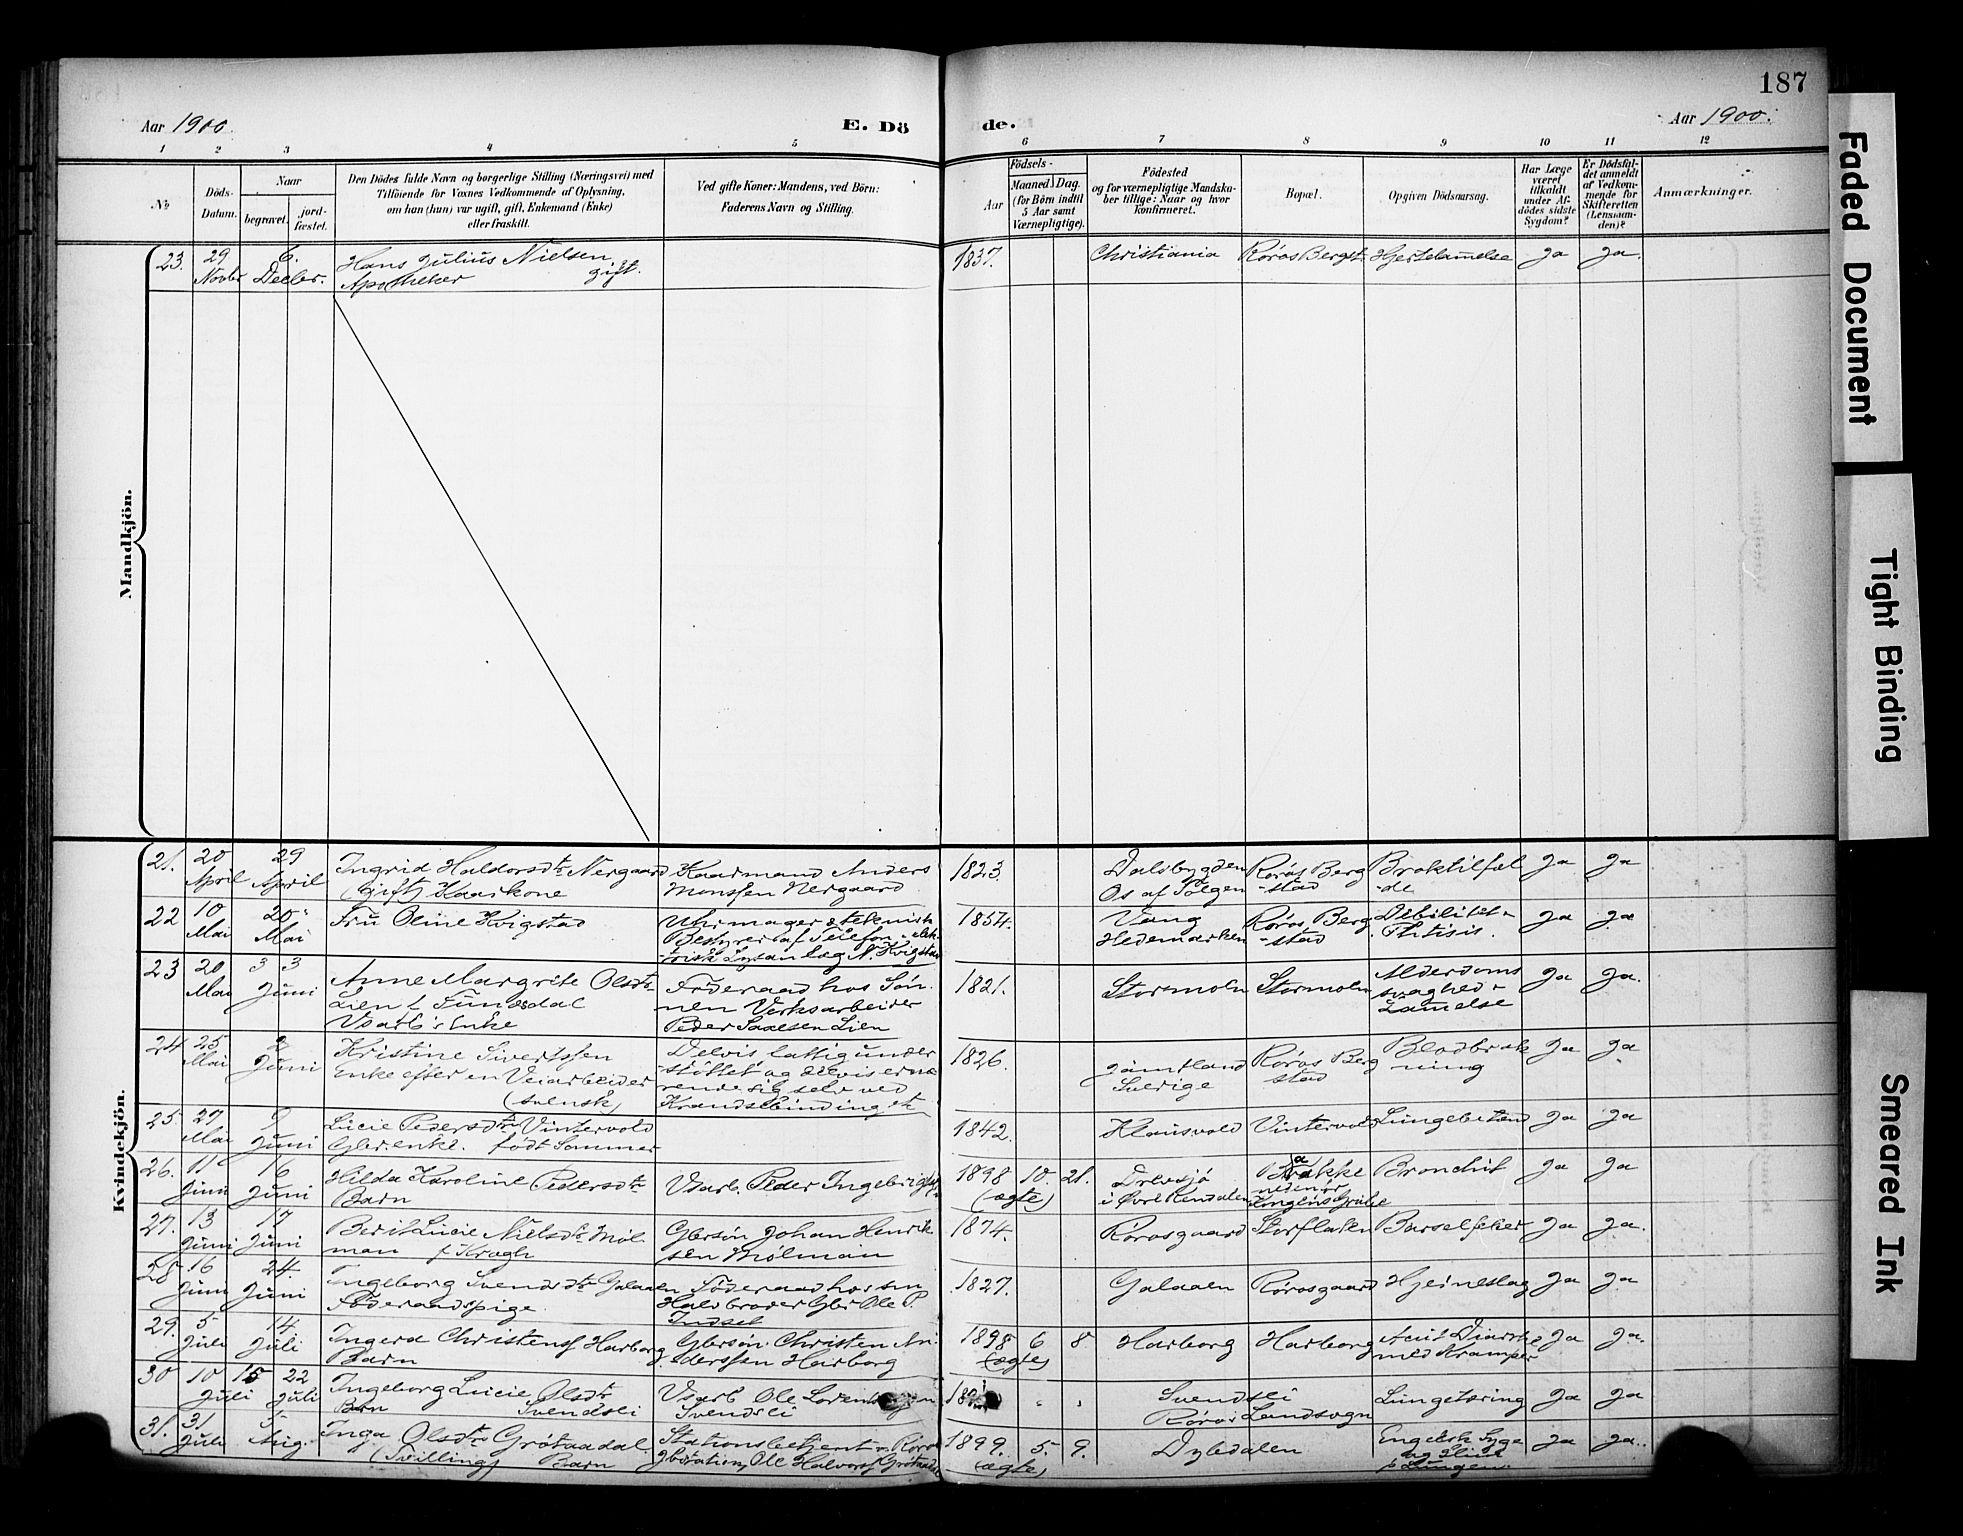 187
Aar 1900.
E. Dö
de.
Aar 1900.
1 2 3 4 5 6 7 8 9 10 11 12
No
Döds-
Datum.
Naar
begravet.
jord-
fæstet.
Den Dödes fulde Navn og borgerlige Stilling (Næringsvei) med
Tilföiende for Voxnes Vedkommende af Oplysning,
om han (hun) var ugift, gift, Enkemand (Enke)
eller fraskilt.
Ved gifte Koner: Mandens, ved Börn:
Faderens Navn og Stilling.
Födsels-
Aar
Maaned. Dag.
(for Börn indtil
5 Aar samt
Værnepligtige).
Födested
og for værnepligtige Mandska-
ber tillige: Naar og hvor
konfirmeret.
Bopæl.
Opgiven Dödsaarsag.
Har Læge
været
tilkaldt
under Af-
dödes sidste
Sygdom?
Er Dödsfal-
det anmeldt
af Vedkom-
mende for
Skifteretten
(Lensman-
den)?
Anmærkninger.
Mandkjön.
23. 29 Novbr 6. Decbr. Hans Julius Nielsen
Apotheker gift.
1837. Christiania Røros Bergst. Hjertelammelse Ja Ja.
Kvindekjön.
21. 20 April 29 April Ingrid Haldorsdtr Nergaard
(gift) Kaarkone
Kaarmand Anders
Monssen Nergaard
1823. Dalsbygden
Os af Tolgen
Røros Berg
-stad
Braktilfæl
-de
Ja Ja
22 10 Mai 20 Mai Fru Oline Kvigstad
Uhrmager & teknisk
Bestyrer af Telefon- elek-
trisk Lysanlæg N. Kvigstad
1854. Vang
Hedemarken
Røros Berg
-stad
Debilitet
Phtisis.
Ja Ja
23 20 Mai 3 3 Juni Anne Margrete Olsdtr
Lien f. Funesdal
Vsarb's Enke
Føderaad hos Søn-
nen Verksarbeider
Peder Lien
1821. Stormoln Stormoln Alderdoms
svaghed
Lamelse
Ja Ja.
24 25 Mai 2 Juni Kristine Sivertssen
Enke efter en Veiarbeider
(svensk)
Delvis fattigunder
støttet og delvis ernæ
rende sig selv ved
Krandsebinding
1826. Jämtland
Sverige
Røros Berg
stad
Blodbræk
ning
Ja Ja
25. 27 Mai 9 Juni Lucie Pedersdtr Vintervold
Gbr.enke. født Sommer
1842. Klausvold Vintervold Lungebetænd Ja Ja
26. 11 Juni 16 Juni Hilda Karoline Pedersdtr
Barn
Vsarb. Peder Ingebrigtss.
1898 10. 21.
(ægte)
Drevsjø
i Øvre Rendalen
Brakke
nedenfor
Kongens Grube
Bronchit Ja Ja
27. 13 Juni 17 Juni Berit Lucie Nielsdtr Møl
man f. Kragh
Gbrsøn Johan Henrik
sen Mølman
1874. Rørosgaard Storflaten Barselfeber Ja Ja.
28 16 Juni 24. Juni Ingeborg Svendsdtr Galaaen
Føderaadspige
Føderaad hos sin
Halvbroder Gbr Ole P.
Indset
1827. Galaaen Rørosgaard Hjerneslag Ja Ja
29. 5 Juli 14 Juli Ingerd Christensd Harborg
Barn
Gbrsøn Christen An-
derssen Harborg
1898 6 8
(ægte)
Harborg Harborg Acut Diarrhe
med Kramper
Ja Ja.
30 10 Juli 15 22 Juli Ingeborg Lucie Olsdtr
Barn Svendsli
Vsarb Ole
Svendsli
Svendsli
Røros Landsogn
Lungetæring Ja Ja
31. 31 Juli 5 Aug. Inga Olsdtr Grötaadal.
(Tvilling) Barn
Stationsbetjent v. Røros
Station, Ole Halvors Grötaadal
1899. 5. 9.
(ægte)
Dybdalen Engelsk Syge
og Slim
p. Lungen.
Ja Ja.
Faded Document
Tight Binding
Smeared Ink